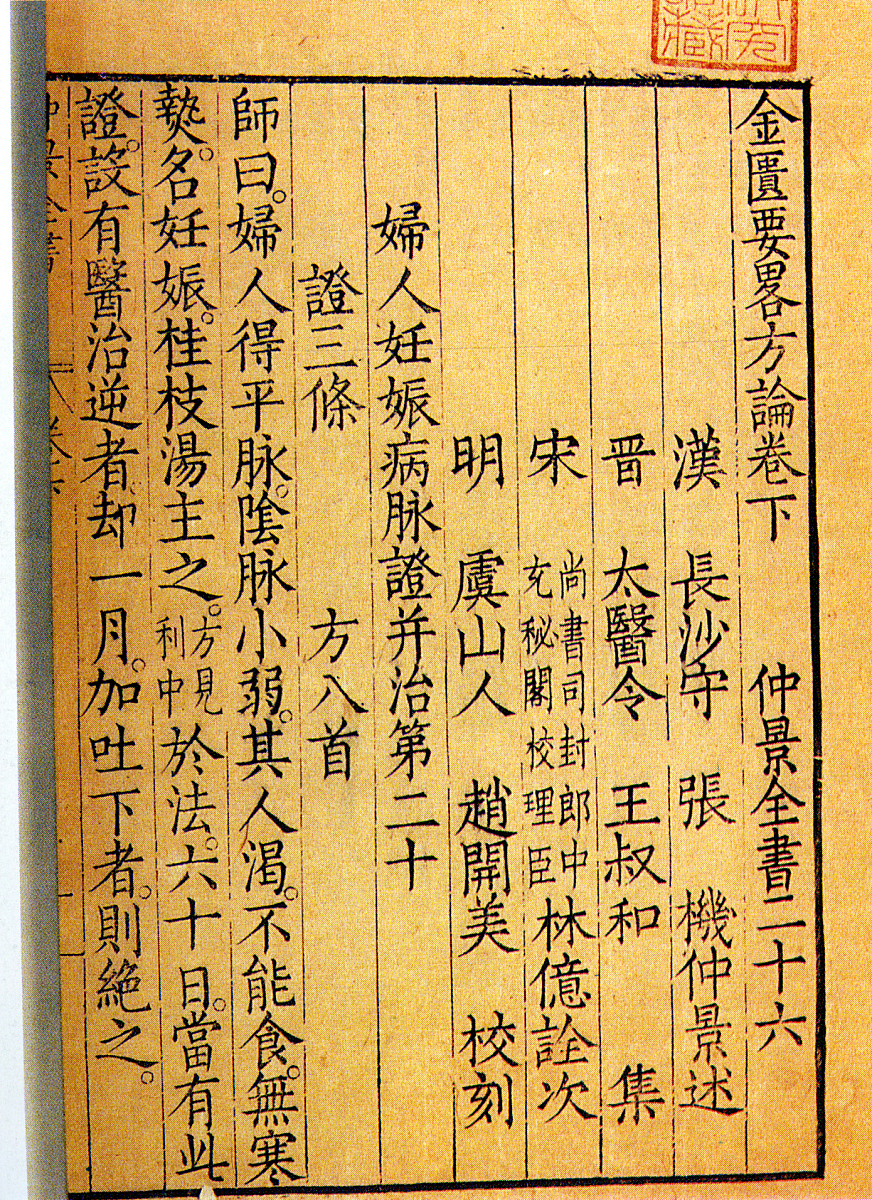 金匱要畧方論卷下　仲景全書二十六
漢　長沙守　張　機仲景述
晋　太醫令　王叔和　集
宋　尚書司封郎中充秘閣校理臣林億詮次
明　虞山人　趙開美　校刻
婦人妊娠病脉證并治第二十
證三條　方八首
師曰。婦人得平脉。陰脉小弱。其人渴。不能食。無寒
𤍠。名妊娠。桂枝湯主之。方見利中於法。六十日。當有此
證。設有醫治逆者。却一月。加吐下者。則絕之。
仲景全書